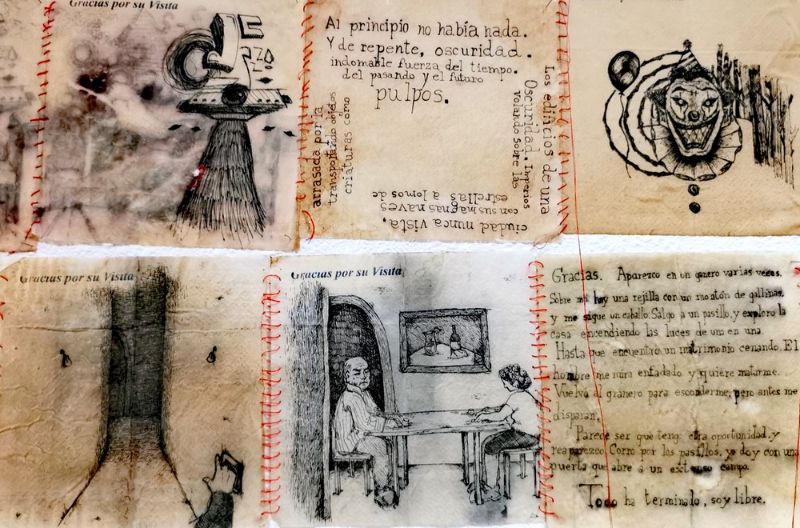 Gracias por su Visita
Al principio no había nada.
Y de repente, oscuridad.
indomable fuerza del tiempo.
del pasando y el futuro
pulpos.
Los edificios de una
ciudad nunca vista,
arrasada por la
Oscuridad. Imperios
volando sobre las
estrellas a lomos de
con sus magnas naves
transportando objetos
criaturas como
Gracias por su Visita
Gracias por su Visita
Gracias. Aparezco en un granero varias veces.
Sobre mi hay una rejilla con un montón de gallinas,
y me sigue un caballo. Salgo a un pasillo, y exploro la
casa encendiendo las luces de una en una.
Hasta que encuentro un matrimonio cenando. El
hombre me mira enfadado y quiere matarme.
Vuelvo al granero para esconderme, pero antes me
disparan.
Parece ser que tengo otra oportunidad, y
reaparezco. Corro por los pasillos, y doy con una
puerta que abre a un extenso campo.
Todo ha terminado, soy libre.